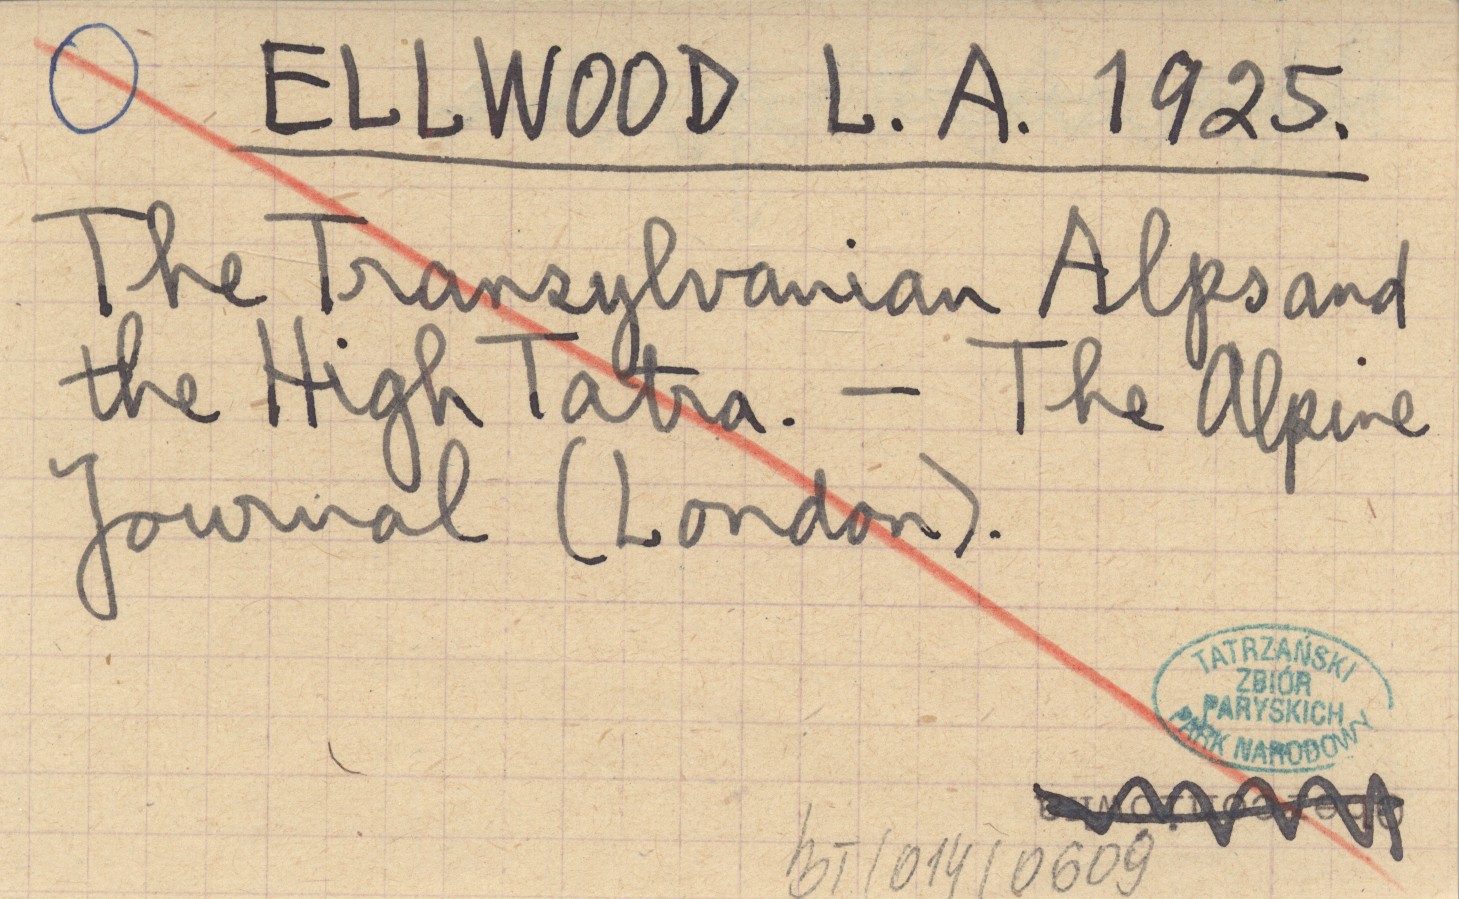 ELLWOOD L. A. 1925.
The Transylvanian Alps and
the High Tatra. — The Alpine
Journal (London).
TATRZAŃSKI
ZBIÓR
PARYSKICH
PARK NARODOWY
BT/014/0609